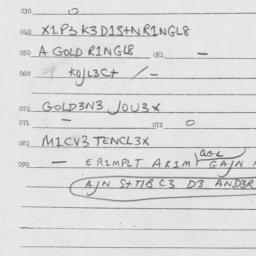 030 0
040 X1P3 K3 D1S+NR1NGL8
050 A GOLD R1NGL8 051 —
060 KOJL3C+ / —
070 GOLD3N3 JOU3X
071 — 072 0
080 M1CV3 TENCL3X
090 — ER1MPLT AR1M GAJN
AJN S++1B C3 D3 AND3R